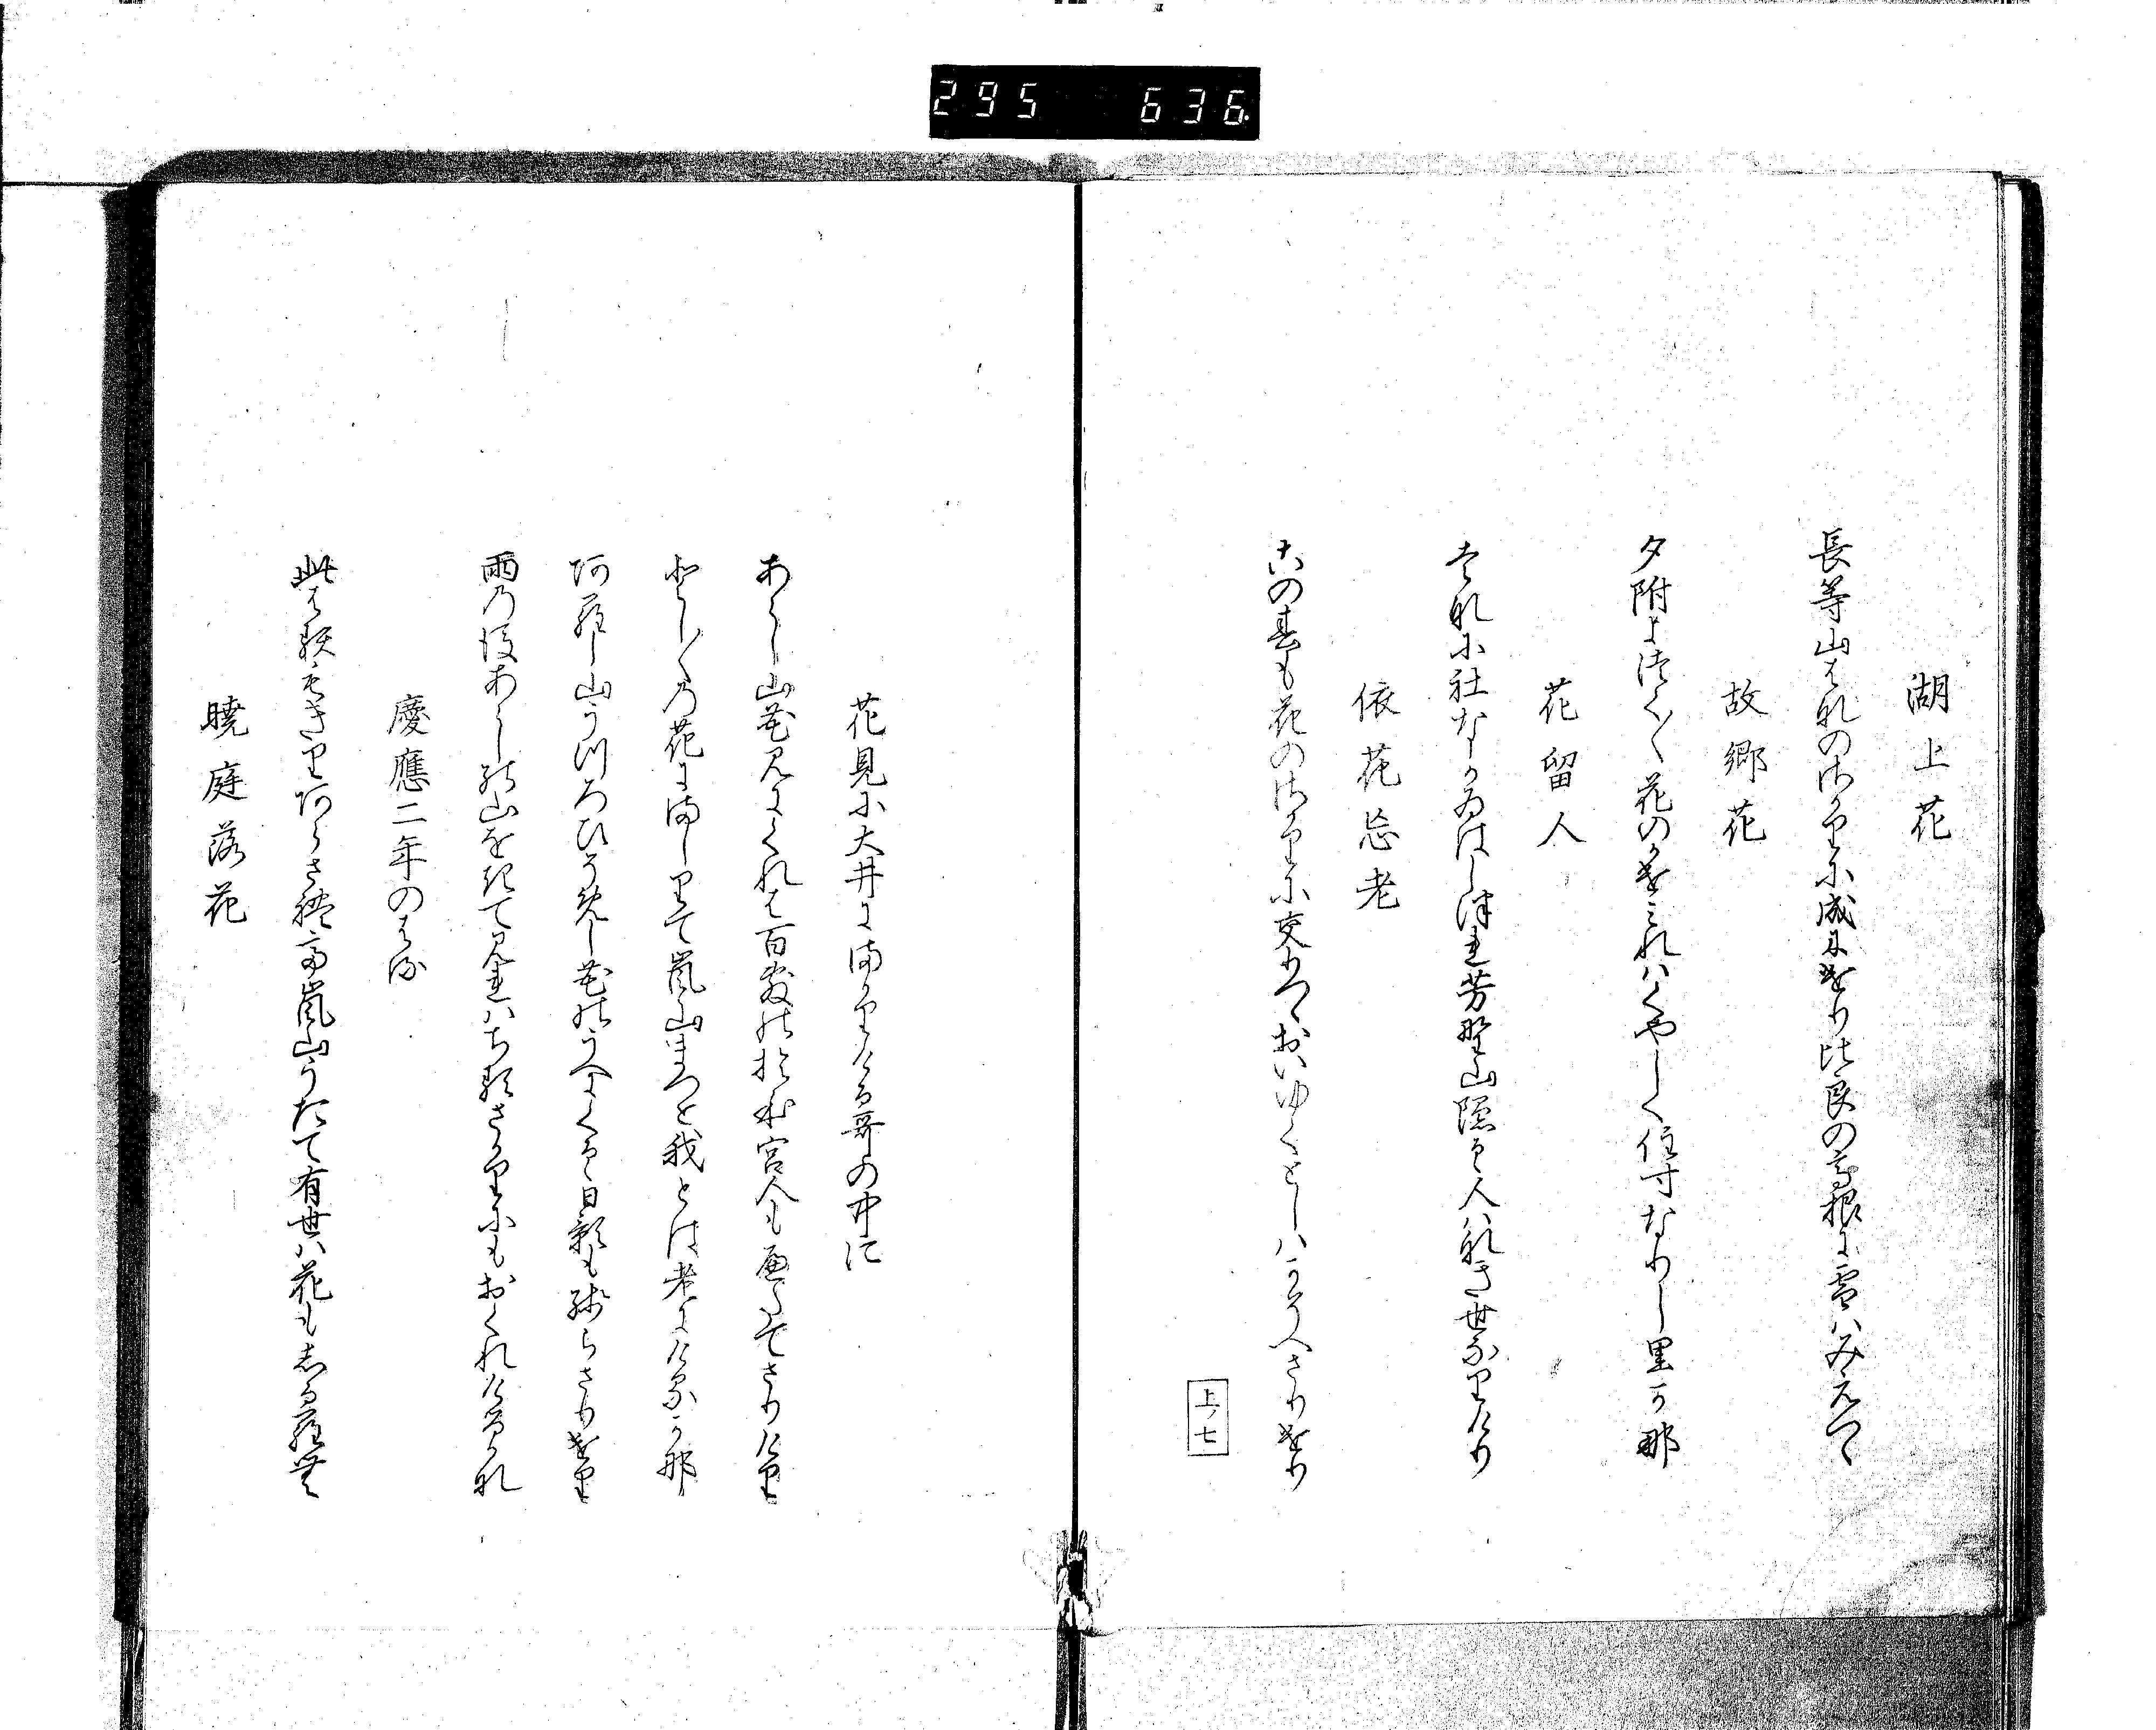 295 636
湖上花
長等山はなのさかりに成にけり比良の高根に雪はみえつゝ
故郷花
夕附よつく〱花のかけみれはくやしく住すなりし里かな
花留人
はなに社なからはしつれ芳野山隠るゝ人はなき世なりけり
依花忘老
この春も花のさかりに交りつゝおいゆくとしはかそへさりけり
上ノ七
花見に大井にまかりける哥の中に
あらし山花見にくれは百敷のおほ宮人もへたてさりけり
としくの花にましりて嵐山まつと我とは老にけるかな
あらし山うつろひそめし花のうへにくるゝ日影も残らさりけり
雨の後あらしの山をきて見れはちるさかりにもおくれけるかな
慶應二年のはる
此はるもさりあらさねと嵐山うたて有世は花もしるらむ
暁庭落花